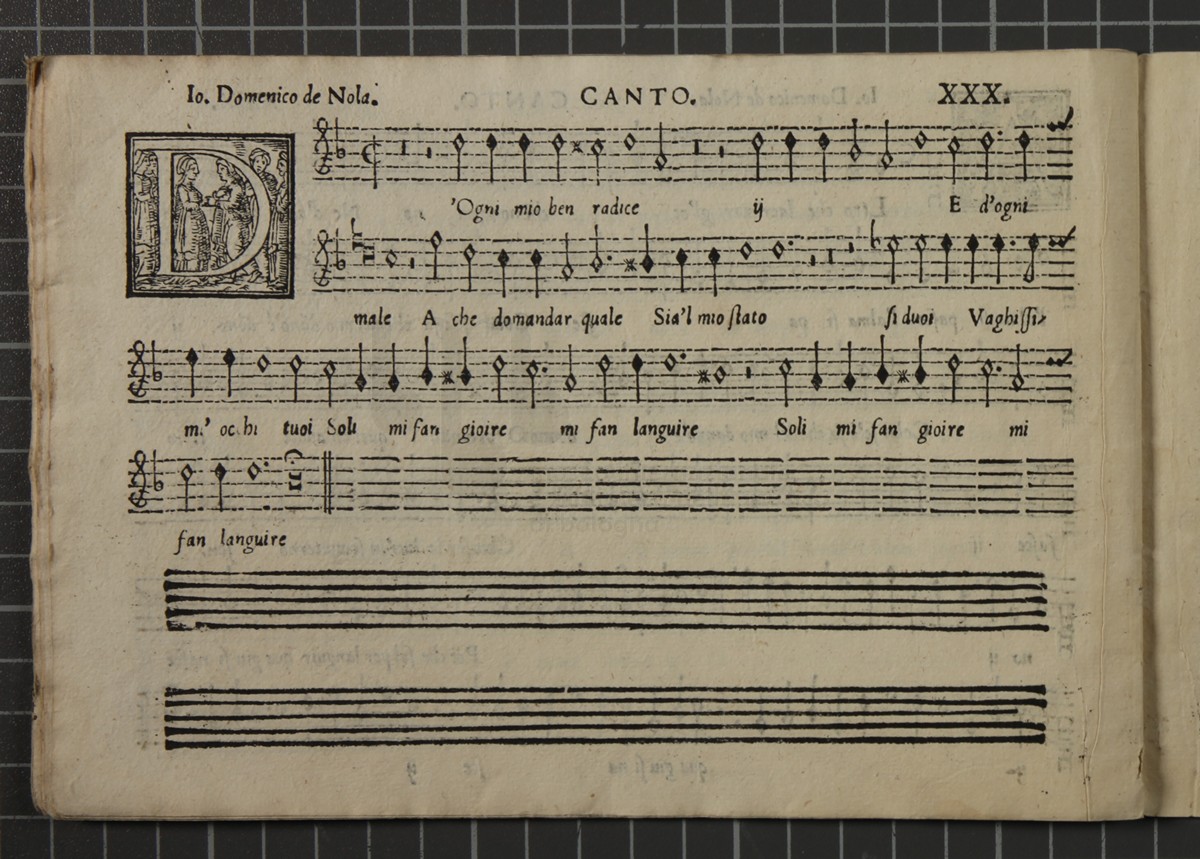 Io. Domenico de Nola. CANTO. XXX.
D'Ogni mio ben radice ij E d'ogni
male A che domandar quale Sia'l mio ſtato ſi duoi Vaghiſſi-
m' occhi tuoi Soli mi fan gioire mi fan languire Soli mi fan gioire mi
fan languire